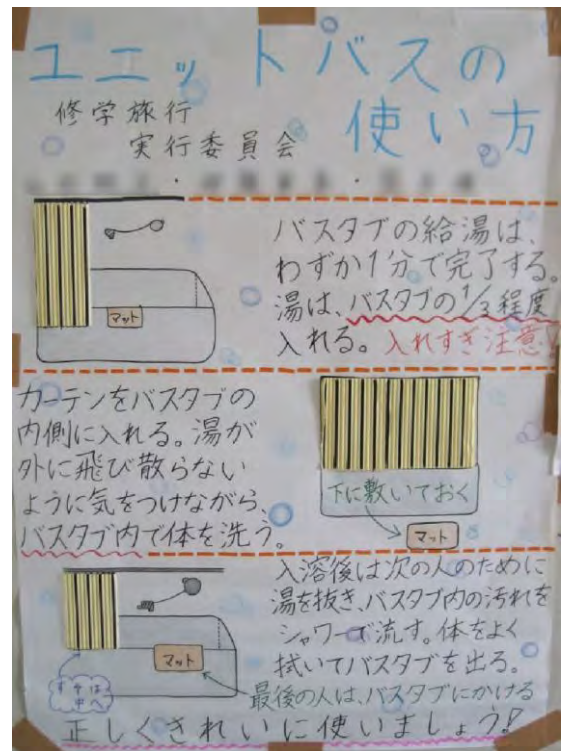 ユニットバスの
使い方
修学旅行
実行委員会
バスタブの給湯は、
わずか1分で完了する。
湯は、バスタブの1/3程度
入れる。入れすぎ注意!
マット
カーテンをバスタブの
内側に入れる。湯が
外に飛び散らない
ように気をつけながら、
バスタブ内で体を洗う。
下に敷いておく
マット
入溶後は次の人のために
湯を抜き、バスタブ内の汚れを
シャワーで流す。体をよく
拭いてバスタブを出る。
マット
すそは
中へ
最後の人は、バスタブにかける
正しくきれいに使いましょう!